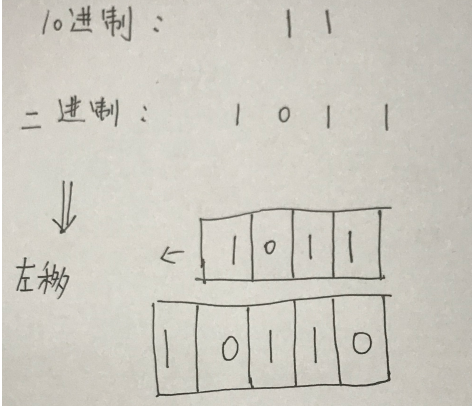 10进制： 1 1
二进制： 1 0 1 1
⇓
← 1 0 1 1
左移
1 0 1 1 0